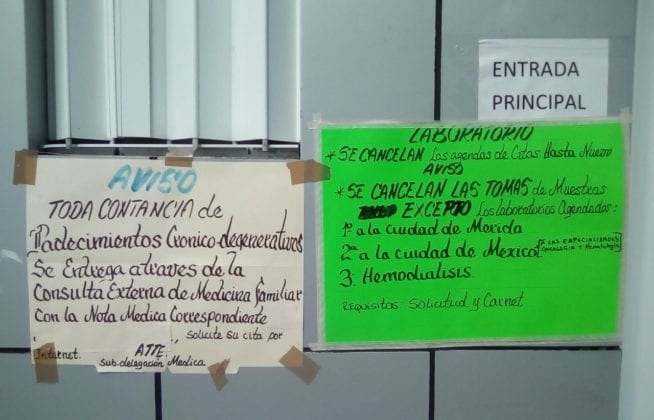 ENTRADA
PRINCIPAL
AVISO
TODA CONTANCIA de
Padecimientos Cronico-degenerativos
Se Entrega atraves de la
Consulta Externa de Medicina familiar
con la Nota Medica Correspondiente
, Solicite su cita por
Internet.
ATTE.
Sub-delegacion Medica
LABORATORIO
* SE CANCELAN Las agendas de Citas Hasta Nuevo
AVISO
* SE CANCELAN LAS TOMAS de Muestras
EXCEPTO Los laboratorios Agendados:
1ª a la ciudad de Merida
2ª a la ciudad de Mexico
A LAS ESPECIALIDADES
ONCOLOGIA Y Hematologia
3. Hemodialisis
REQUISITOS Solicitud y Carnet